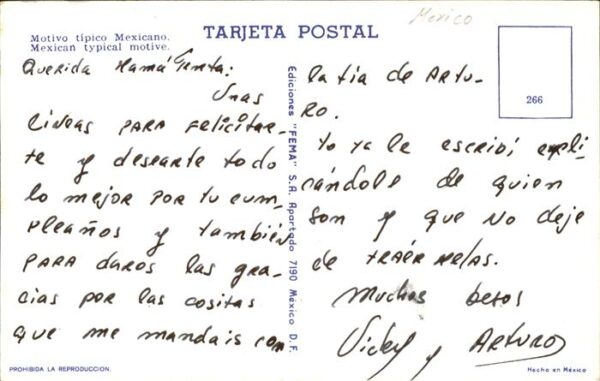 Mexico
TARJETA POSTAL
Motivo típico Mexicano.
Mexican typical motive.
Querida Mamá
Unas
líneas PARA Felicitar-
te y desearte todo
lo mejor por tu cum-
pleaños y también
PARA daros las gra-
cias por las cositas
que me mandais con
Ediciones "FEMA" S.A. Apartado 7190 México D.F.
266
la tía de ARTU-
RO.
Yo ya le escribí expli-
cándole de quien
son y que no deje
de TRAÉRMELAS.
Muchos besos
Vicky y ARTURO
PROHIBIDA LA REPRODUCCION.
Hecho en México